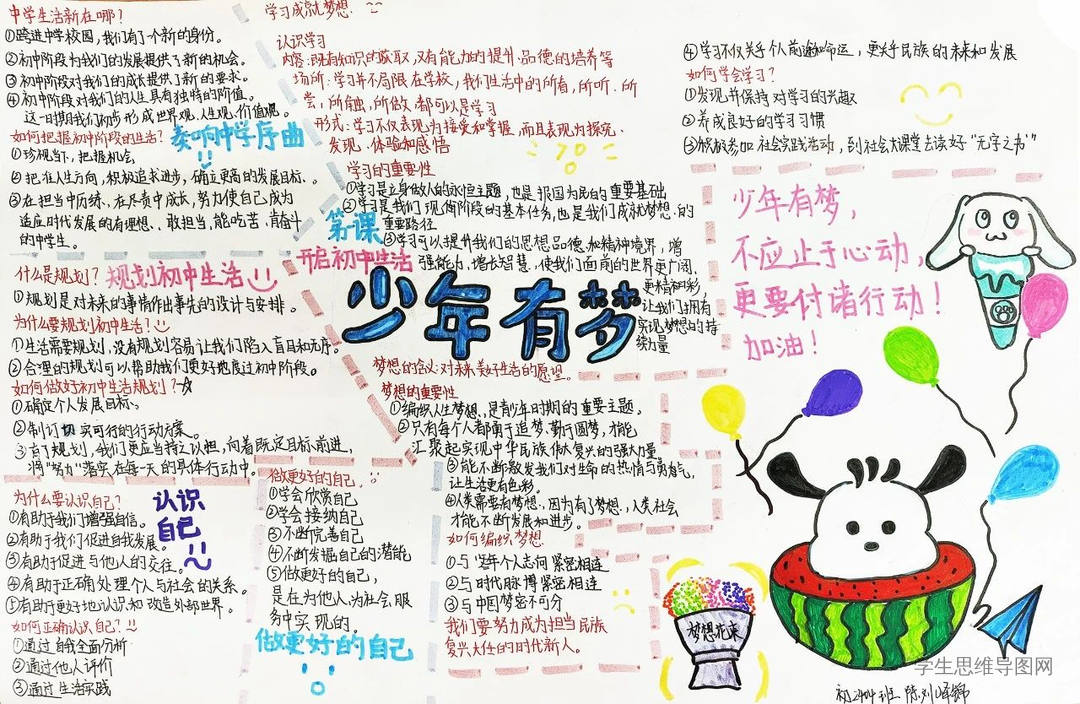 中学生活新在哪?
①跨进中学校园,我们有了个新的身份。
②初中阶段为我们的发展提供了新的机会。
③初中阶段对我们的成长提供了新的要求。
④初中阶段对我们的人生具有独特的价值。
这一时期我们初步形成世界观、人生观、价值观。
如何把握初中阶段的生活?
奏响中学序曲
①珍视当下,把握机会。
②把在人生方向,积极追求进步,确立更高的发展目标、。
③在担当中历练、在尽责中成长,努力使自己成为
适应时代发展的有理想、、敢担当,能吃苦、肯奋斗
的中学生。
什么是规划?
规划初中生活
①规划是对未来的事情作出事先的设计与安排。
为什么要规划初中生活?
①生活需要规划,没有规划容易让我们陷入盲目和无序。
②合理的规划可以帮助我们更好地度过初中阶段。
如何做好初中生活规划?
①确定个人发展目标、
②制订切实可行的行动方案。
③有了规划,我们更应当持之以恒,向着既定目标前进,
将“努力”落实在每一天的具体行动中。
为什么要认识自己?
认识
自己
①有助于我们增强自信。
②有助于我们促进自我发展。
③有助于促进与他人的交往。
④有助于正确处理个人与社会的关系。
⑤有助于更好地认识和改造外部世界。
如何正确认识自己?
①通过自我全面分析
②通过他人评价
③通过生活实践
做更好的自己、
①学会欣赏自己
②学会接纳自己
③不断完善自己
④不断发掘自己的潜能
⑤做更好的自己,
是在为他人、为社会服
务中实现的。
做更好的自己
学习成就梦想、
认识学习
内容:既有知识的获取,又有能力的提升、品德的培养等
场所:学习并不局限在学校,我们生活中的所看,所听、所
尝,所触、所做、都可以是学习
形式:学习不仅表现为接受和掌握,而且表现为探究、
发现、体验和感悟
学习的重要性
①学习是立身做人的永恒主题,也是报国为民的重要基础
②学习是我们现阶段的基本任务,也是我们成就梦想、的
重要路径
③学习可以提升我们的思想品德、和精神境界,增
强能力,增长智慧,使我们面前的世界更广阔、
更精彩,
让我们拥有
实现梦想的持
续力量
第一课
开启初中生活
少年有梦
梦想的含义:对未来美好生活的愿望。
梦想的重要性
①编织人生梦想、,是青少年时期的重要主题。
②只有每个人都勇于追梦、勤于圆梦,才能
汇聚起实现中华民族伟大复兴的强大力量
③能不断激发我们对生命的热情与勇气,
让生活更有色彩。
④人类需要有梦想、,因为有了梦想、,人类社会
才能不断发展和进步。
如何编织梦想
①与少年个人志向紧密相连
②与时代脉搏紧密相连
③与中国梦密不可分
我们要努力成为担当民族
复兴大任的时代新人。
④学习不仅关乎个人前途和命运,更关乎民族的未来和发展
如何学会学习?
①发现并保持对学习的兴趣
②养成良好的学习习惯
③积极参加社会实践活动,到社会大课堂去读好“无字之书”
少年有梦,
不应止于心动,
更要付诸行动!
加油!
梦想花束
学生思维导图网